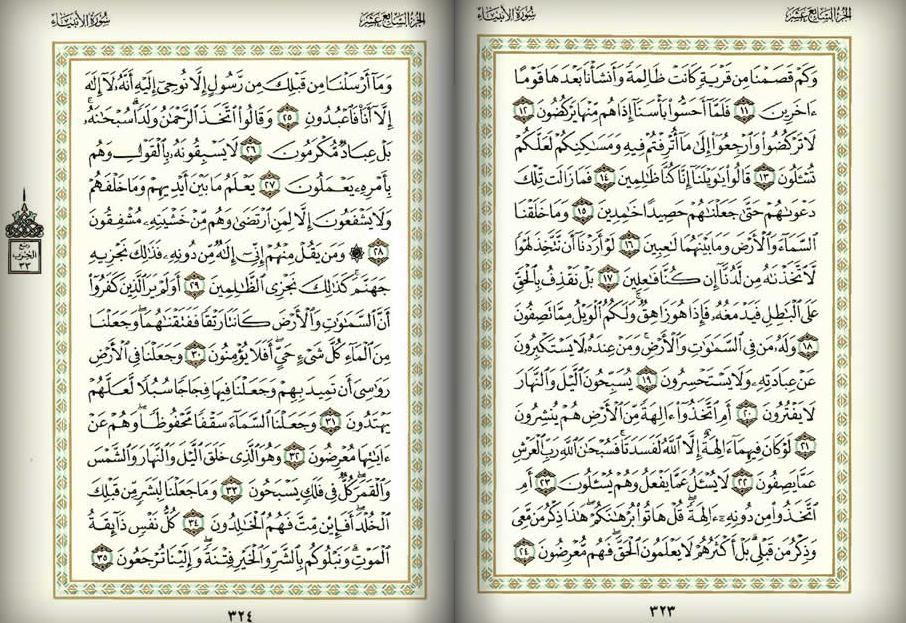 الجزء السابع عشر سورة الأنبياء
وَكَمْ قَصَمْنَا مِن قَرْيَةٍ كَانَتْ ظَالِمَةً وَأَنشَأْنَا بَعْدَهَا قَوْمًا
ءَاخَرِينَ ١١ فَلَمَّآ أَحَسُّوا۟ بَأْسَنَآ إِذَا هُم مِّنْهَا يَرْكُضُونَ ١٢
لَا تَرْكُضُوا۟ وَٱرْجِعُوٓا۟ إِلَىٰ مَآ أُتْرِفْتُمْ فِيهِ وَمَسَٰكِنِكُمْ لَعَلَّكُمْ
تُسْـَٔلُونَ ١٣ قَالُوا۟ يَٰوَيْلَنَآ إِنَّا كُنَّا ظَٰلِمِينَ ١٤ فَمَا زَالَت تِّلْكَ
دَعْوَىٰهُمْ حَتَّىٰ جَعَلْنَٰهُمْ حَصِيدًا خَٰمِدِينَ ١٥ وَمَا خَلَقْنَا
ٱلسَّمَآءَ وَٱلْأَرْضَ وَمَا بَيْنَهُمَا لَٰعِبِينَ ١٦ لَوْ أَرَدْنَآ أَن نَّتَّخِذَ لَهْوًا
لَّٱتَّخَذْنَٰهُ مِن لَّدُنَّآ إِن كُنَّا فَٰعِلِينَ ١٧ بَلْ نَقْذِفُ بِٱلْحَقِّ
عَلَى ٱلْبَٰطِلِ فَيَدْمَغُهُۥ فَإِذَا هُوَ زَاهِقٌ ۚ وَلَكُمُ ٱلْوَيْلُ مِمَّا تَصِفُونَ
١٨ وَلَهُۥ مَن فِى ٱلسَّمَٰوَٰتِ وَٱلْأَرْضِ ۚ وَمَنْ عِندَهُۥ لَا يَسْتَكْبِرُونَ
عَنْ عِبَادَتِهِۦ وَلَا يَسْتَحْسِرُونَ ١٩ يُسَبِّحُونَ ٱلَّيْلَ وَٱلنَّهَارَ
لَا يَفْتُرُونَ ٢٠ أَمِ ٱتَّخَذُوٓا۟ ءَالِهَةً مِّنَ ٱلْأَرْضِ هُمْ يُنشِرُونَ
٢١ لَوْ كَانَ فِيهِمَآ ءَالِهَةٌ إِلَّا ٱللَّهُ لَفَسَدَتَا ۚ فَسُبْحَٰنَ ٱللَّهِ رَبِّ ٱلْعَرْشِ
عَمَّا يَصِفُونَ ٢٢ لَا يُسْـَٔلُ عَمَّا يَفْعَلُ وَهُمْ يُسْـَٔلُونَ ٢٣ أَمِ
ٱتَّخَذُوا۟ مِن دُونِهِۦٓ ءَالِهَةً ۖ قُلْ هَاتُوا۟ بُرْهَٰنَكُمْ ۖ هَٰذَا ذِكْرُ مَن مَّعِىَ
وَذِكْرُ مَن قَبْلِى ۗ بَلْ أَكْثَرُهُمْ لَا يَعْلَمُونَ ٱلْحَقَّ ۖ فَهُم مُّعْرِضُونَ ٢٤
٣٢٣
الجزء السابع عشر سورة الأنبياء
وَمَآ أَرْسَلْنَا مِن قَبْلِكَ مِن رَّسُولٍ إِلَّا نُوحِىٓ إِلَيْهِ أَنَّهُۥ لَآ إِلَٰهَ
إِلَّآ أَنَا۠ فَٱعْبُدُونِ ٢٥ وَقَالُوا۟ ٱتَّخَذَ ٱلرَّحْمَٰنُ وَلَدًا ۗ سُبْحَٰنَهُۥ ۚ
بَلْ عِبَادٌ مُّكْرَمُونَ ٢٦ لَا يَسْبِقُونَهُۥ بِٱلْقَوْلِ وَهُم
بِأَمْرِهِۦ يَعْمَلُونَ ٢٧ يَعْلَمُ مَا بَيْنَ أَيْدِيهِمْ وَمَا خَلْفَهُمْ
وَلَا يَشْفَعُونَ إِلَّا لِمَنِ ٱرْتَضَىٰ وَهُم مِّنْ خَشْيَتِهِۦ مُشْفِقُونَ
٢٨ ۞ وَمَن يَقُلْ مِنْهُمْ إِنِّىٓ إِلَٰهٌ مِّن دُونِهِۦ فَذَٰلِكَ نَجْزِيهِ
جَهَنَّمَ ۚ كَذَٰلِكَ نَجْزِى ٱلظَّٰلِمِينَ ٢٩ أَوَلَمْ يَرَ ٱلَّذِينَ كَفَرُوٓا۟
أَنَّ ٱلسَّمَٰوَٰتِ وَٱلْأَرْضَ كَانَتَا رَتْقًا فَفَتَقْنَٰهُمَا ۖ وَجَعَلْنَا
مِنَ ٱلْمَآءِ كُلَّ شَىْءٍ حَىٍّ ۖ أَفَلَا يُؤْمِنُونَ ٣٠ وَجَعَلْنَا فِى ٱلْأَرْضِ
رَوَٰسِىَ أَن تَمِيدَ بِهِمْ وَجَعَلْنَا فِيهَا فِجَاجًا سُبُلًا لَّعَلَّهُمْ
يَهْتَدُونَ ٣١ وَجَعَلْنَا ٱلسَّمَآءَ سَقْفًا مَّحْفُوظًا ۖ وَهُمْ عَنْ
ءَايَٰتِهَا مُعْرِضُونَ ٣٢ وَهُوَ ٱلَّذِى خَلَقَ ٱلَّيْلَ وَٱلنَّهَارَ وَٱلشَّمْسَ
وَٱلْقَمَرَ ۖ كُلٌّ فِى فَلَكٍ يَسْبَحُونَ ٣٣ وَمَا جَعَلْنَا لِبَشَرٍ مِّن قَبْلِكَ
ٱلْخُلْدَ ۖ أَفَإِي۟ن مِّتَّ فَهُمُ ٱلْخَٰلِدُونَ ٣٤ كُلُّ نَفْسٍ ذَآئِقَةُ
ٱلْمَوْتِ ۗ وَنَبْلُوكُم بِٱلشَّرِّ وَٱلْخَيْرِ فِتْنَةً ۖ وَإِلَيْنَا تُرْجَعُونَ ٣٥
٣٢٤
ربع
الحزب
٣٣